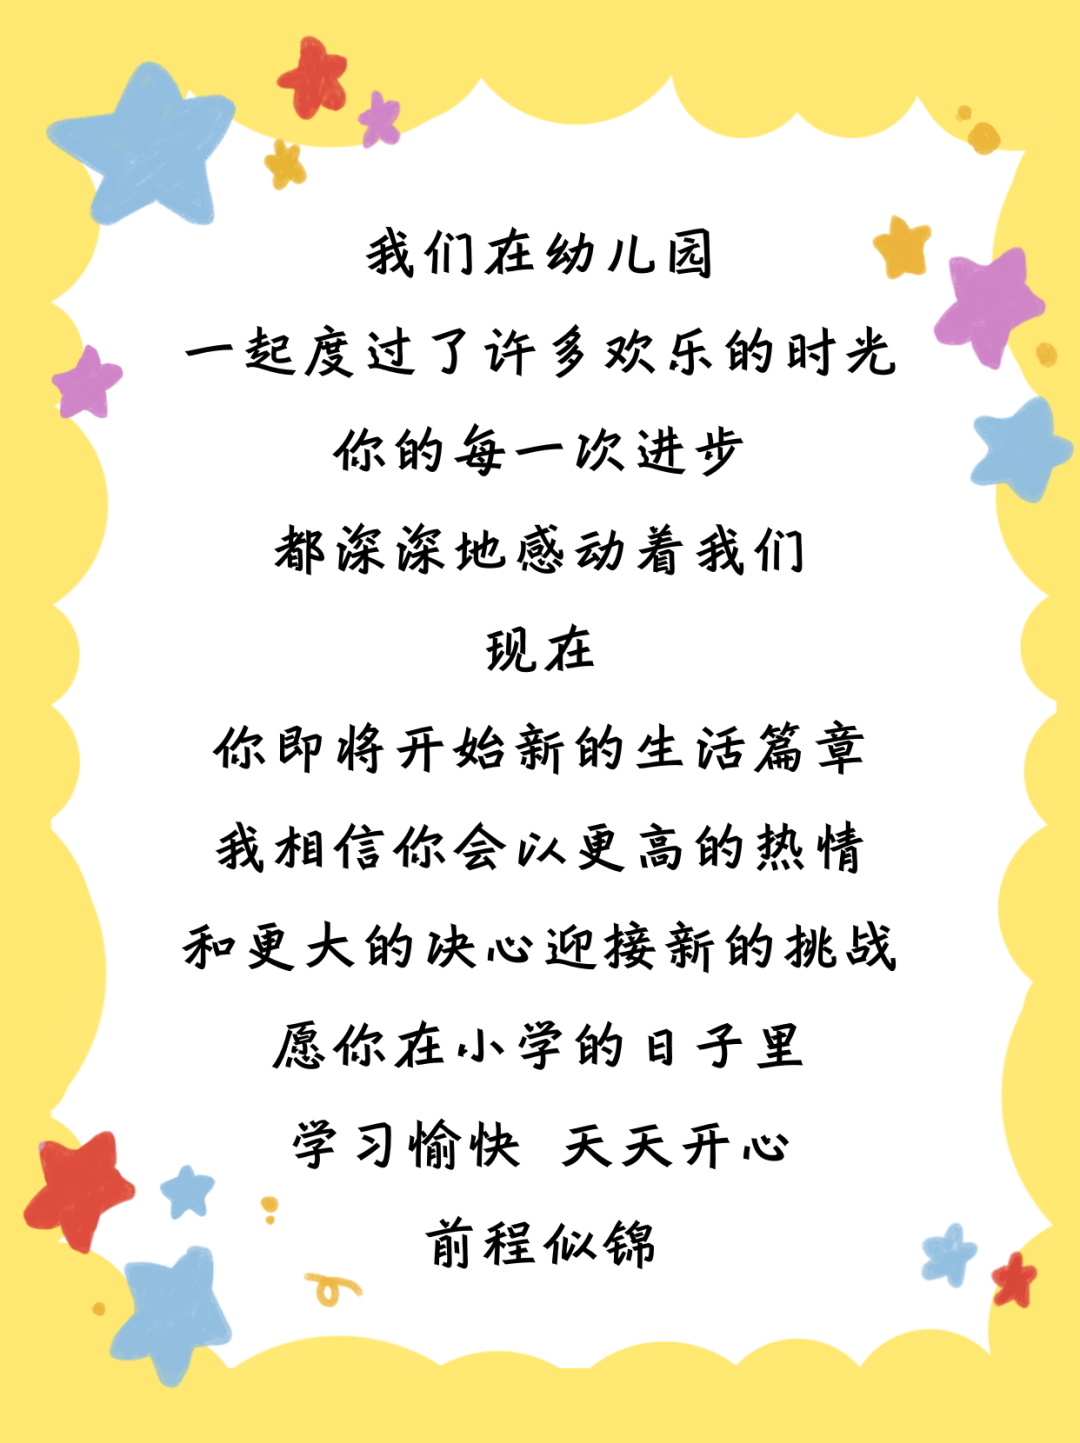 我们在幼儿园
一起度过了许多欢乐的时光
你的每一次进步
都深深地感动着我们
现在
你即将开始新的生活篇章
我相信你会以更高的热情
和更大的决心迎接新的挑战
愿你在小学的日子里
学习愉快 天天开心
前程似锦